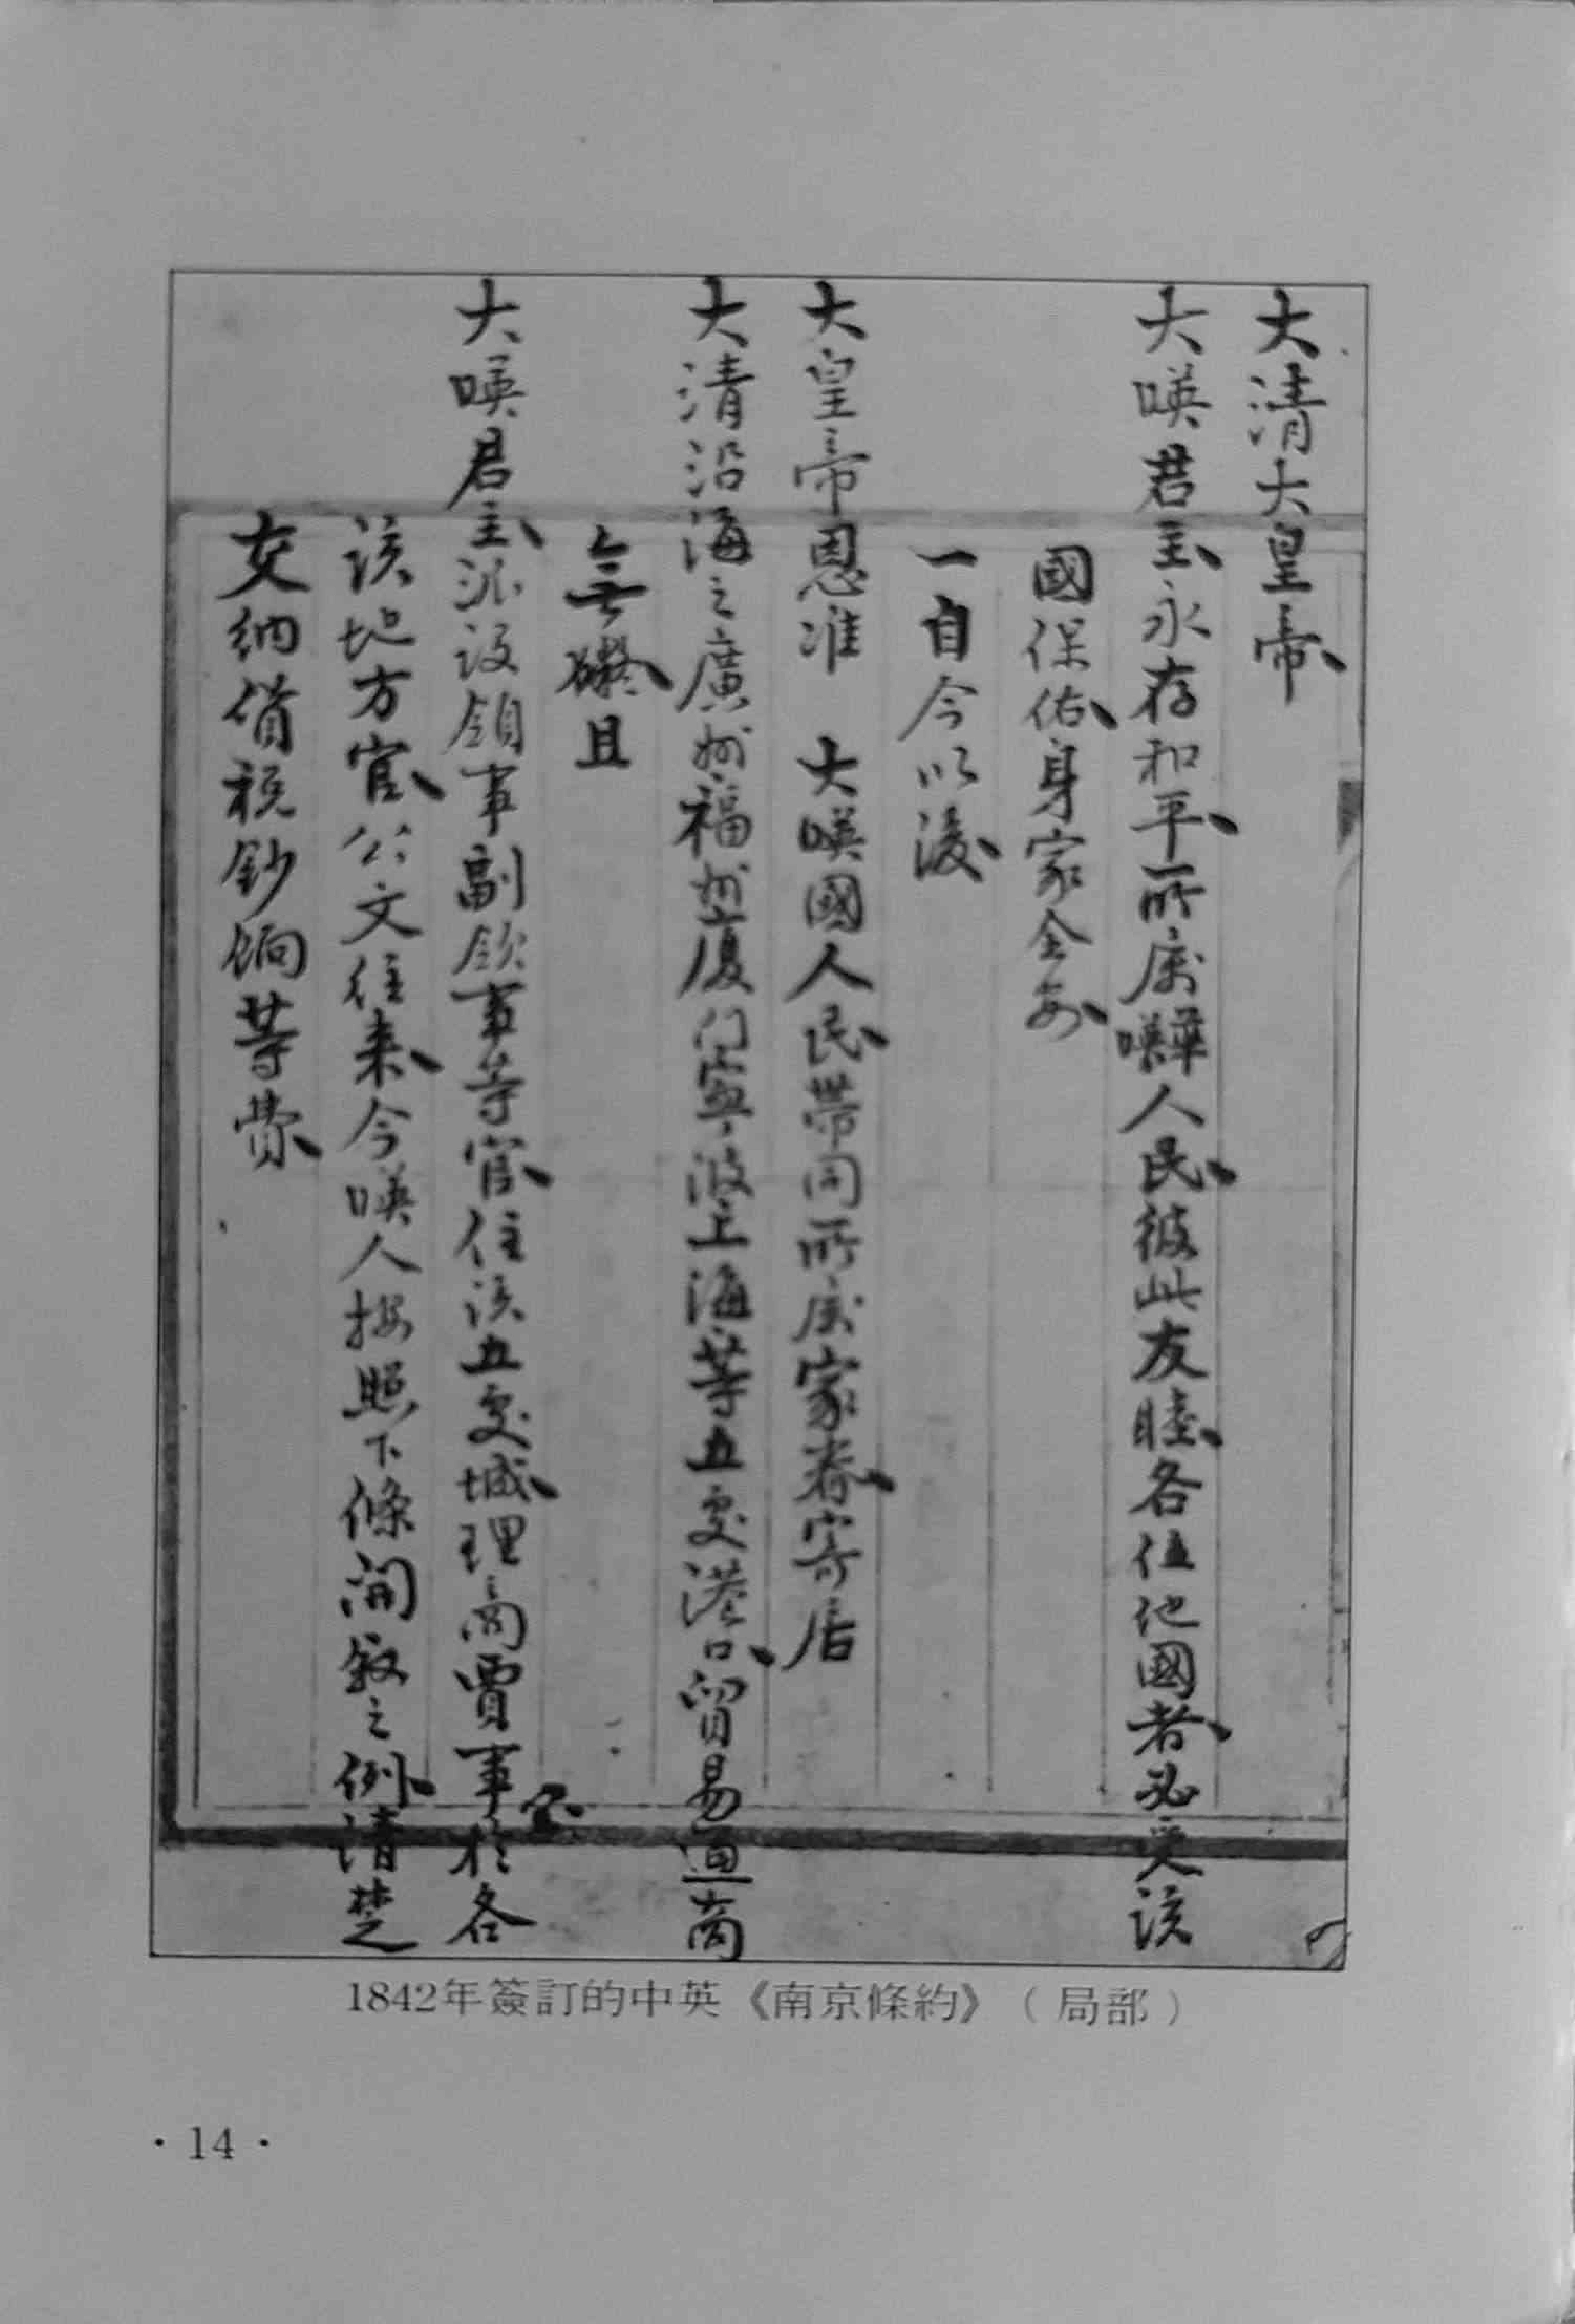 大清大皇帝、
大㗆君主、永存和平、所屬㗆華人民、彼此友睦、各住他國者、必受該
國保佑、身家全安、
一自今以後、
大皇帝恩准 大㗆國人民、帶同所屬家眷、寄居
大清沿海之廣州福州廈门寧波上海等五處港口、貿易通商
無礙、且
大㗆君主、派設領事副領事等官、住該五處城、理商賈事宜、於各
該地方官、公文往來、今㗆人按照下條開敘之例、清楚
交納貨稅鈔餉等費、
1842年簽訂的中英《南京條約》（局部）
· 14 ·